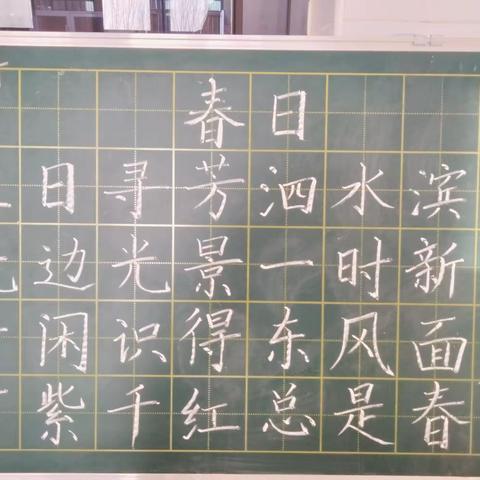 春日
日寻芳泗水滨
边光景一时新
闲识得东风面
紫千红总是春